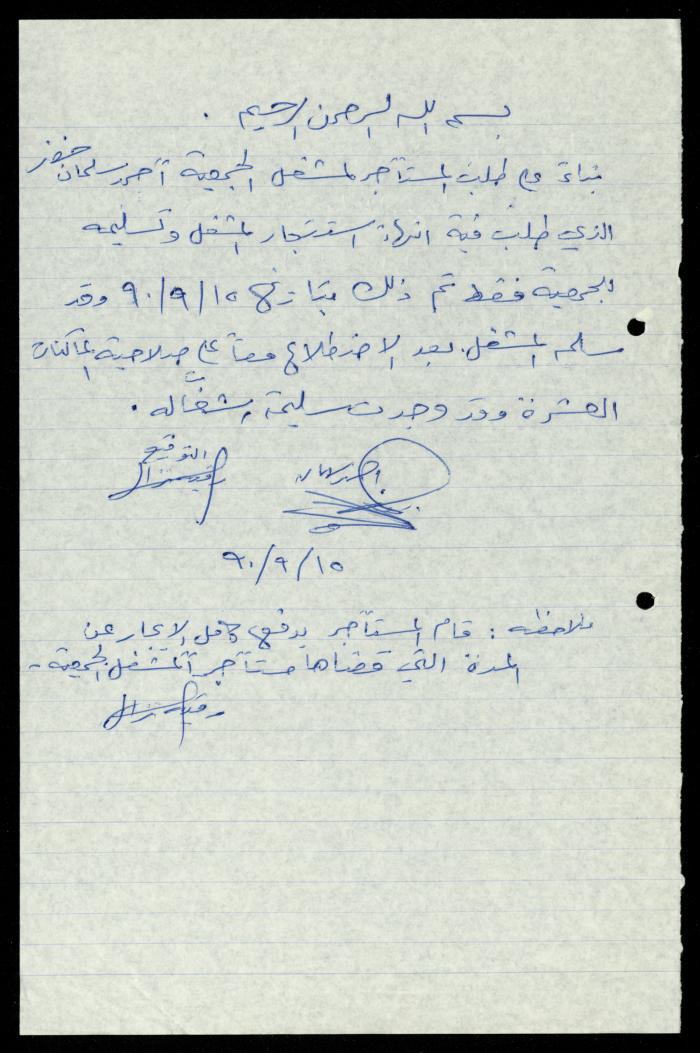 بسم الله الرحمن الرحيم .
بناءً على طلب المستأجر لمشغل الجمعية أحمد سلمان
الذي طلب فيه انهاء استئجار المشغل وتسليمه
للجمعية فقط تم ذلك بتاريخ ٩٠/٩/١٥ وقد
سلم المشغل بعد الاضطلاع معاً على صلاحية الماكنات
العشرة وقد وجدت سليمة شغّاله .
التوقيع
أحمد سلمان
٩٠/٩/١٥
ملاحظه : قام المستأجر بدفع كامل الايجار عن
المدة التي قضاها مستأجر لمشغل الجمعية -